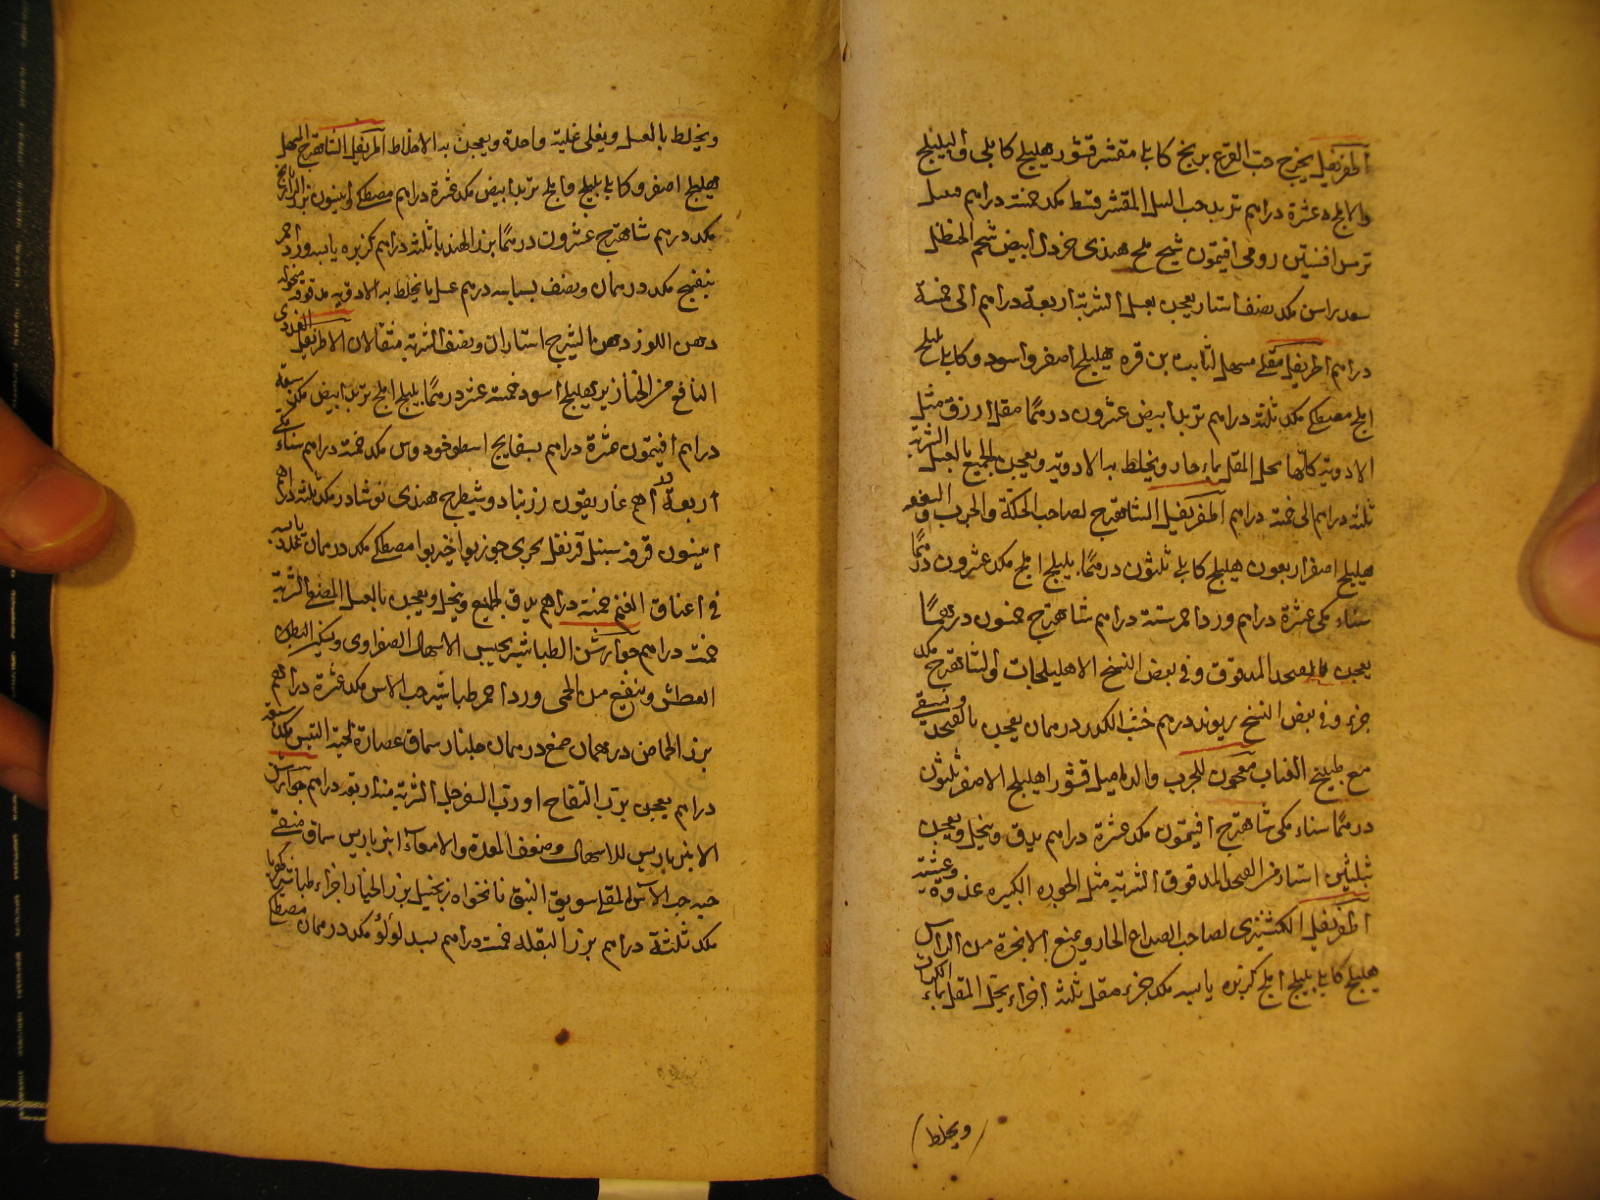 اطريفل يخرج حب القرع برنج كابلى مقشر قشور هليلج كابلى والبليلج
والاملج د عشرة دراهم تربد حب النيل المقشر قسط مكد خمسة دراهم فعسل
ترمس افسنتين رومى افتيمون شيح ملح هندى خردل ابيض شحم الحنظل
سعد راسن مكد نصف استار يعجن بعسل الشربة اربعة دراهم الى خمسة
دراهم اطريفل مقلى مسهل لثابت بن قره هليلج اصفر واسود وكابلى بليلج
املج مصطكى مكد ثلثة دراهم تربد ابيض عشرون درهمًا مقل ازرق مثل
الادوية كلها يحل المقل بماء حار ويخلط به الادوية ويعجن الجميع بالعسل الشربة
ثلثة دراهم الى خمسة دراهم اطريفل الشاهترج لصاحب الحكة والجرب
هليلج اصفر اربعون هليلج كابلى ثلثون درهمًا بليلج املج مكد عشرون درهمًا
سناء مكى عشرة دراهم ورد احمر ستة دراهم شاهترج خمسون درهمًا
يعجن المدقوق وفى بعض النسخ الاهليلجات والشاهترج مكد
جزء وفى بعض النسخ ريوند درهم خبث الكدر درهمان يعجن ويسقى
مع طبيخ العناب معجون للجرب والدماميل قشور اهليلج الاصفر ثلثون
درهمًا سناء مكى شاهترج افتيمون مكد عشرة دراهم يدق وينخل ويعجن
بثلثين استار من المدقوق الشربة مثل الجوزه الكبيره غدوة وعشية
اطريفل الكشنيزى لصاحب الصداع الحار ويمنع الابخرة من الراس
هليلج كابلى بليلج املج كزبره يابسه مكد جزء مقل ثلثة اجزاء يحل المقل بماء الكراث
ويخلط
ويخلط بالعسل ويغلى غلية واحدة ويعجن به الاخلاط اطريفل الشاهترج المسهل
هليلج اصفر وكابلى بليلج واملج تربد ابيض مكد عشرة دراهم مصطكى وانيسون بزر الرازيانج
مكد درهم شاهترج عشرون درهمًا بزر الهندبا ثلثة دراهم كزبره يابسه ورد احمر
بنفسج مكد درهمان ونصف بسباسه درهم عسل ما يخلط به الادويه مدقوقه منخوله
دهن اللوز دهن الشيرج استاران ونصف الشربة مثقالان الاطريفل الغددى
النافع من الخنازير هليلج اسود خمسة عشر درهمًا بليلج املج تربد ابيض مكد سبعة
دراهم افتيمون عشرة دراهم بسفايج اسطوخودوس مكد خمسة دراهم سناء مكى
اربعة دراهم غاريقون زرنباد وشيطرج هندى نوشادر مكد ثلثة دراهم
انيسون قرفه سنبل قرنفل بحرى جوزبوا خيربوا مصطكى مكد درهمان غدد يابسه
فى اعناق الغنم خمسة دراهم يدق الجميع وينخل ويعجن بالعسل المصفى الشربة
خمسة دراهم جوارشن الطباشير يحبس الاسهال الصفراوى ويسكن
العطش وينفع من الحمى ورد احمر طباشير حب الاس مكد عشرة دراهم
بزر الحماض درهمان صمغ درهمان جلنار سماق عصارة لحية التيس مكد سبعة
دراهم يعجن برب التفاح او رب السفرجل الشربة منه اربعة دراهم جوارشن
الانبرباريس للاسهال وضعف المعدة والامعاء انبرباريس سماق منقى
حبه حب الاس المقلى سويق النبق نانخواه زنجبيل بزر الخيار اجزاء طباشير كهربا
مكد ثلثة دراهم بزر البقله خمسة دراهم بسد لؤلؤ مكد درهمان مصطكى